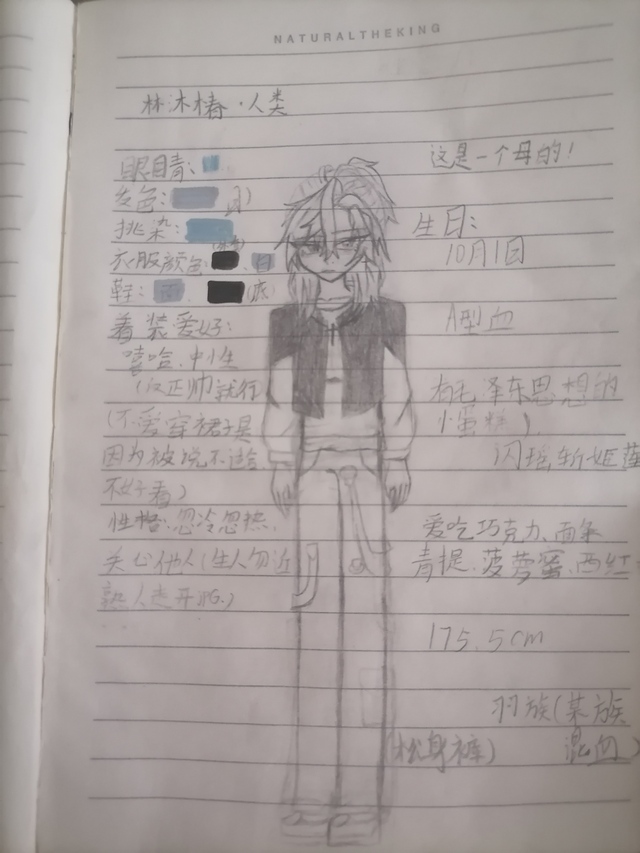 NATURALTHEKING
林沐椿·人类
这是一个母的!
眼睛:
发色:
挑染:
衣服颜色: 、白
鞋: 、 (底)
着装爱好:
嘻哈.中性
(反正帅就行
(不爱穿裙子是
因为被说不适合
不好看)
性格:忽冷忽热.
关心他人(生人勿近
熟人走开
生日:
10月1日
A型血
有毛泽东思想的
小蛋糕)
爱吃巧克力、面条
青提.菠萝蜜.西红
175.5cm
羽族(某族
混血)
(松身裤)